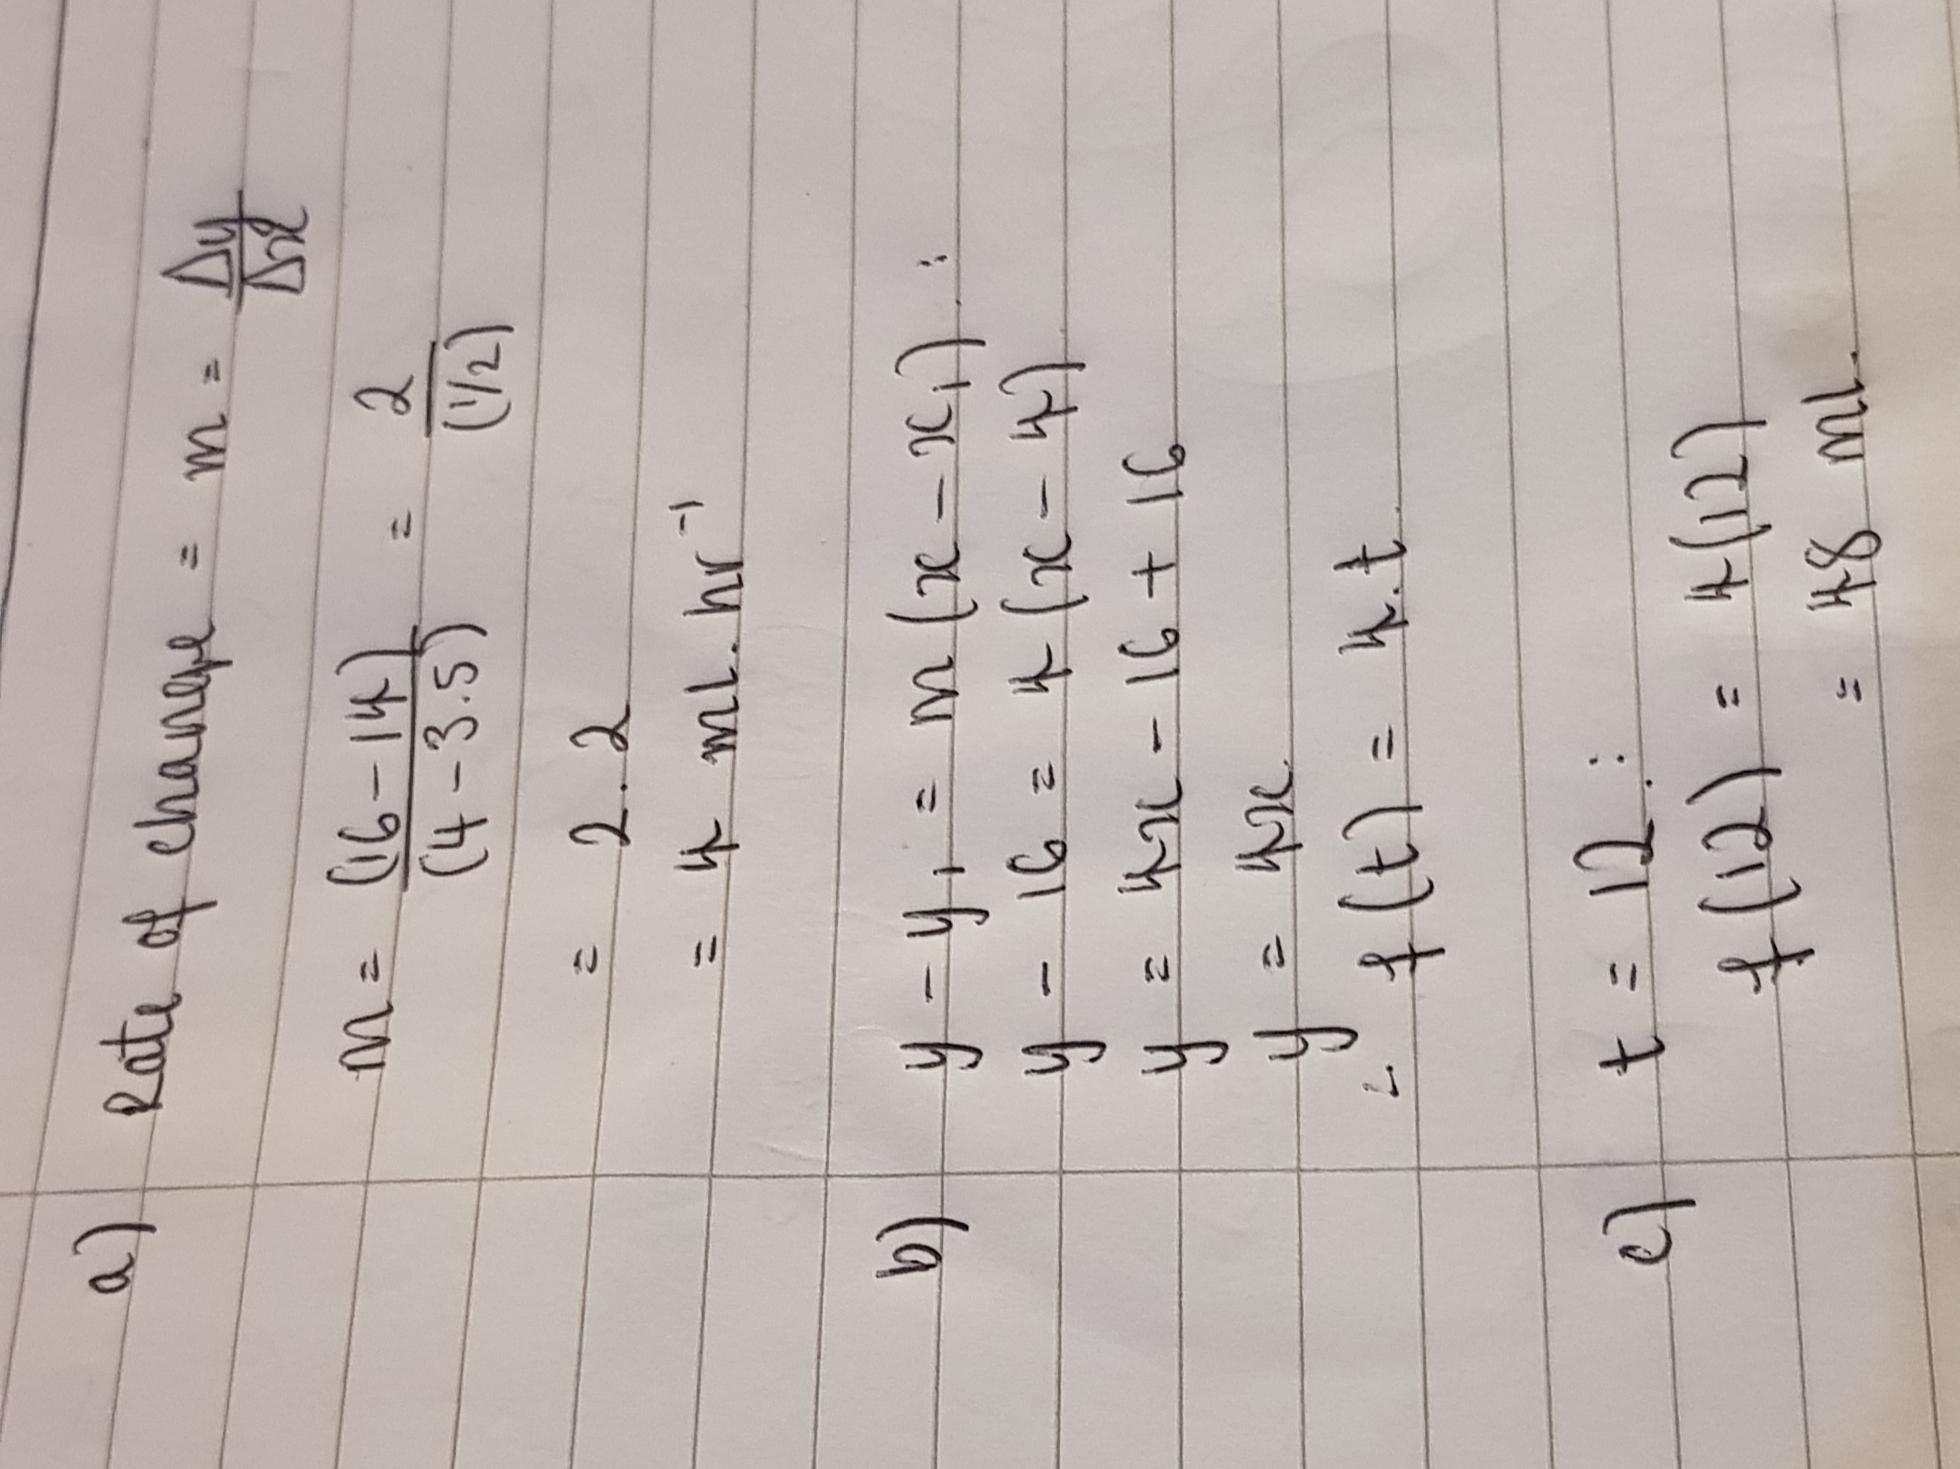 a) Rate of change = m = Δy/Δx
m = (16 - 14)/(4 - 3.5) = 2/(1/2)
= 2.2
= 4 mL.hr⁻¹
b) y - y₁ = m(x - x₁) :
y - 16 = 4(x - 4)
y = 4x - 16 + 16
y = 4x
f(t) = 4.t
c) t = 12 :
f(12) = 4(12)
= 48 mL.